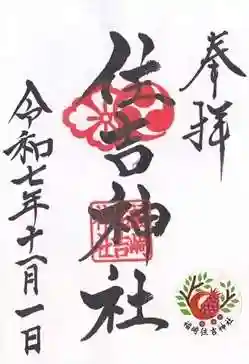 奉拝
住吉神社
令和七年十一月一日
福崎住吉神社